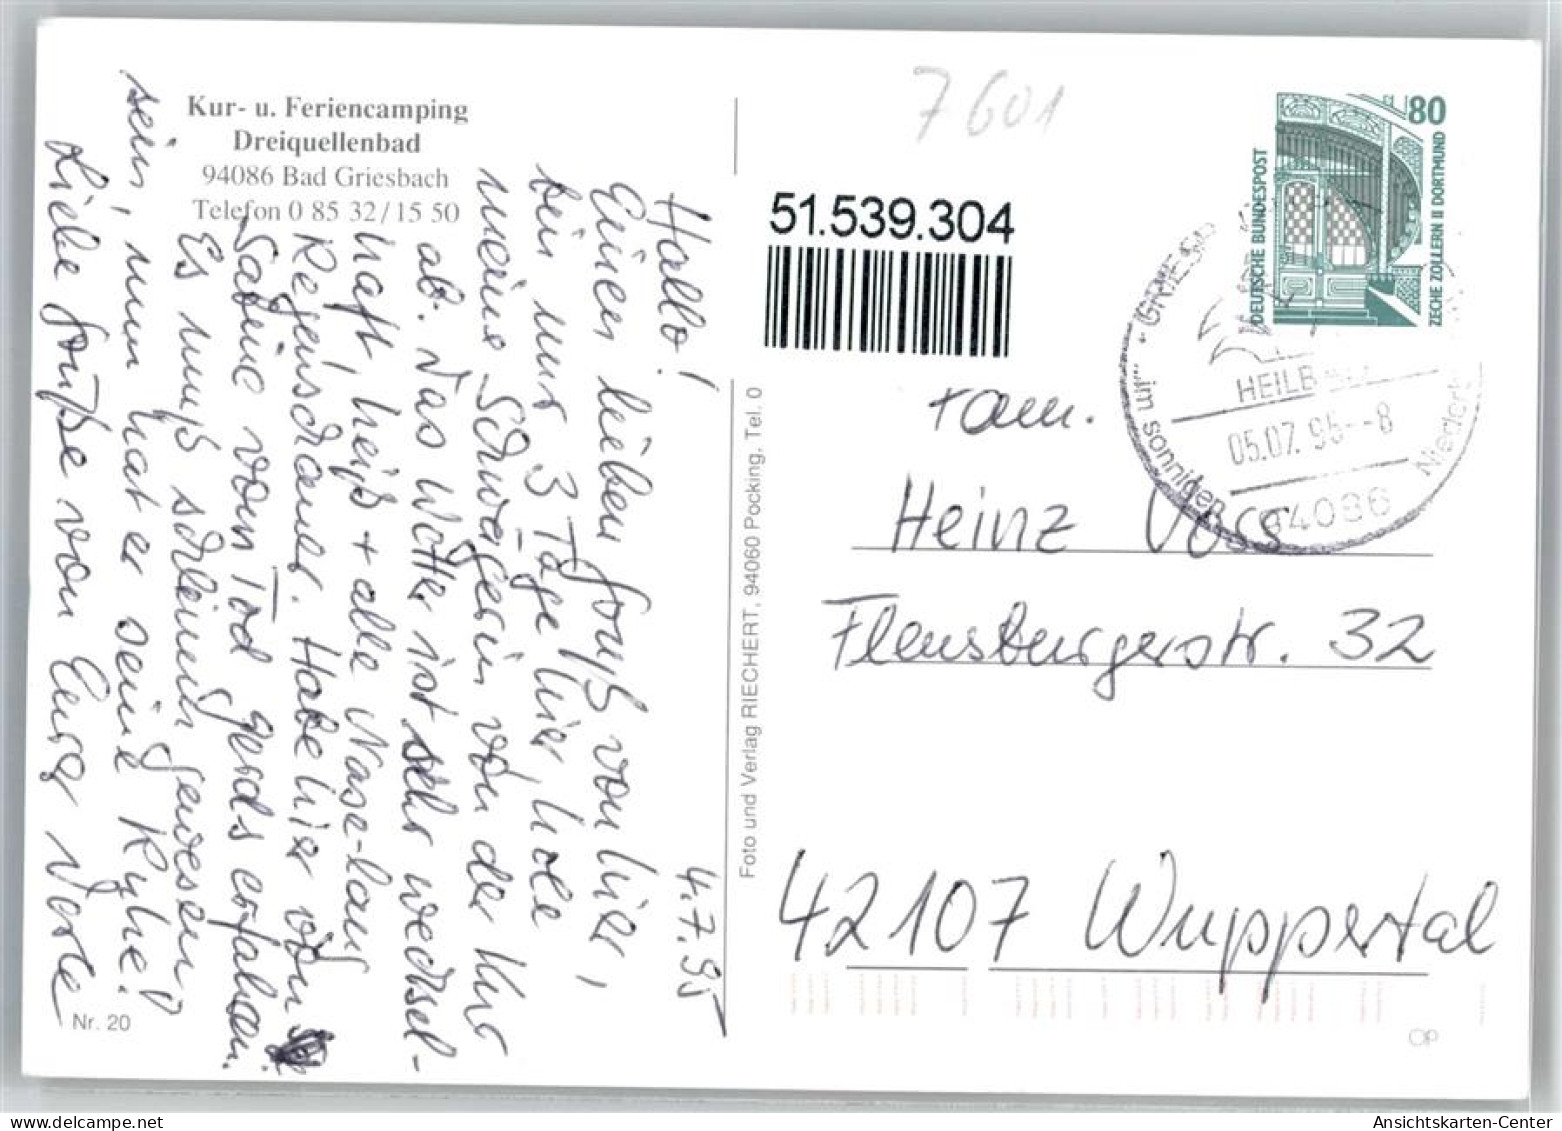 Kur- u. Feriencamping
Dreiquellenbad
94086 Bad Griesbach
Telefon 0 85 32/15 50
4.7.95
Hallo!
Einen lieben Gruß von hier,
bin nur 3 Tage hier, hole
meine Schwägerin von der Kur
ab. Das Wetter ist sehr wechsel-
haft, heiß + alle Nase-lang
Regenschauer. Habe hier von
Sabine vom Tod Gerds erfahren.
Es muß schlimm gewesen
sein, nun hat er seine Ruhe!
Liebe Grüße von Eurer
Nr. 20
Foto und Verlag RIECHERT, 94060 Pocking, Tel. 0
7601
51.539.304
80
DEUTSCHE BUNDESPOST
ZECHE ZOLLERN II DORTMUND
GRIESB
HEILB
05.07.95--8
94086
im sonnigen
Niederb
Fam.
Heinz Voss
Flensburgerstr. 32
42107 Wuppertal
OP
Ansichtskarten-Center